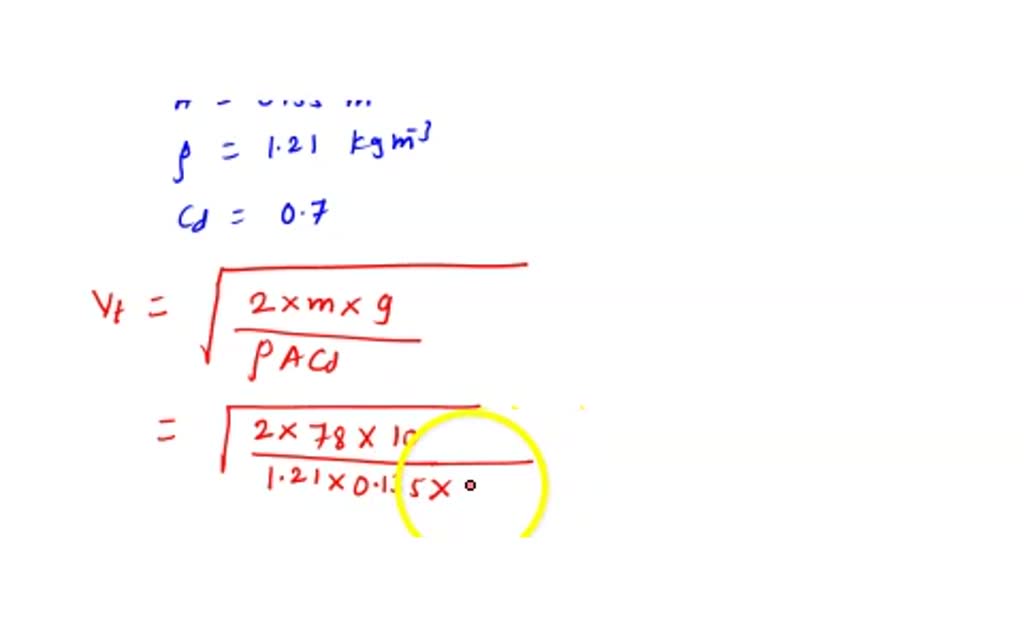 ρ = 1.21 kg m⁻³
Cd = 0.7
Vt = √(2 × m × g / ρ A Cd)
= √(2 × 78 × 10 / 1.21 × 0.135 ×